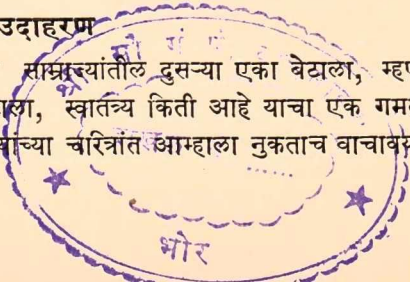 उदाहरण
साम्राज्यांतील दुसऱ्या एका बेटाला, म्हण
ला, स्वातंत्र्य किती आहे याचा एक गम
यांच्या चरित्रांत आम्हाला नुकताच वाचाव
भोर